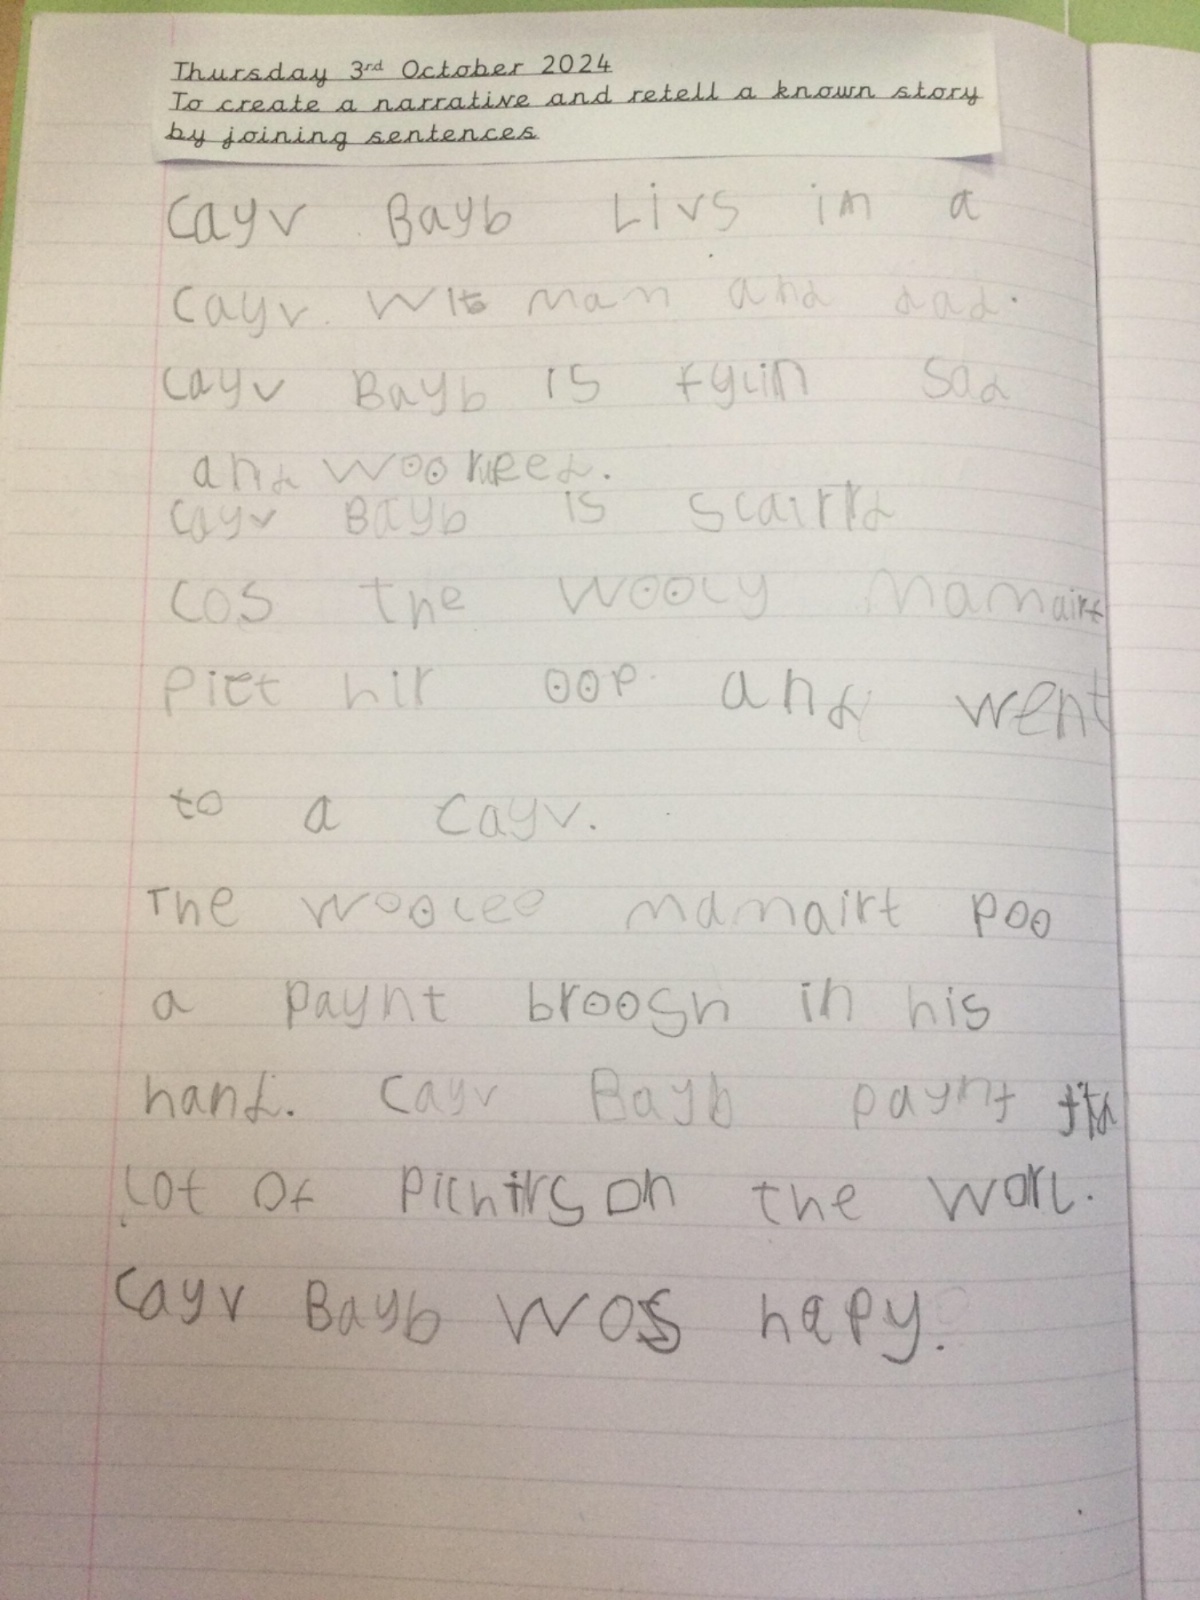 Thursday 3rd October 2024
To create a narrative and retell a known story
by joining sentences
cayv Bayb Livs in a
cayv. wit mam and dad.
cayv Bayb is fylin sad
and wooreed.
cayv Bayb is scairrd
cos the wooly mamairt
pict hir oop. and went
to a cayv.
The woolee mamairt poo
a paynt broosh in his
hand. cayv Bayb paynt
Lot of pichirs on the worl.
cayv Bayb wos hapy.